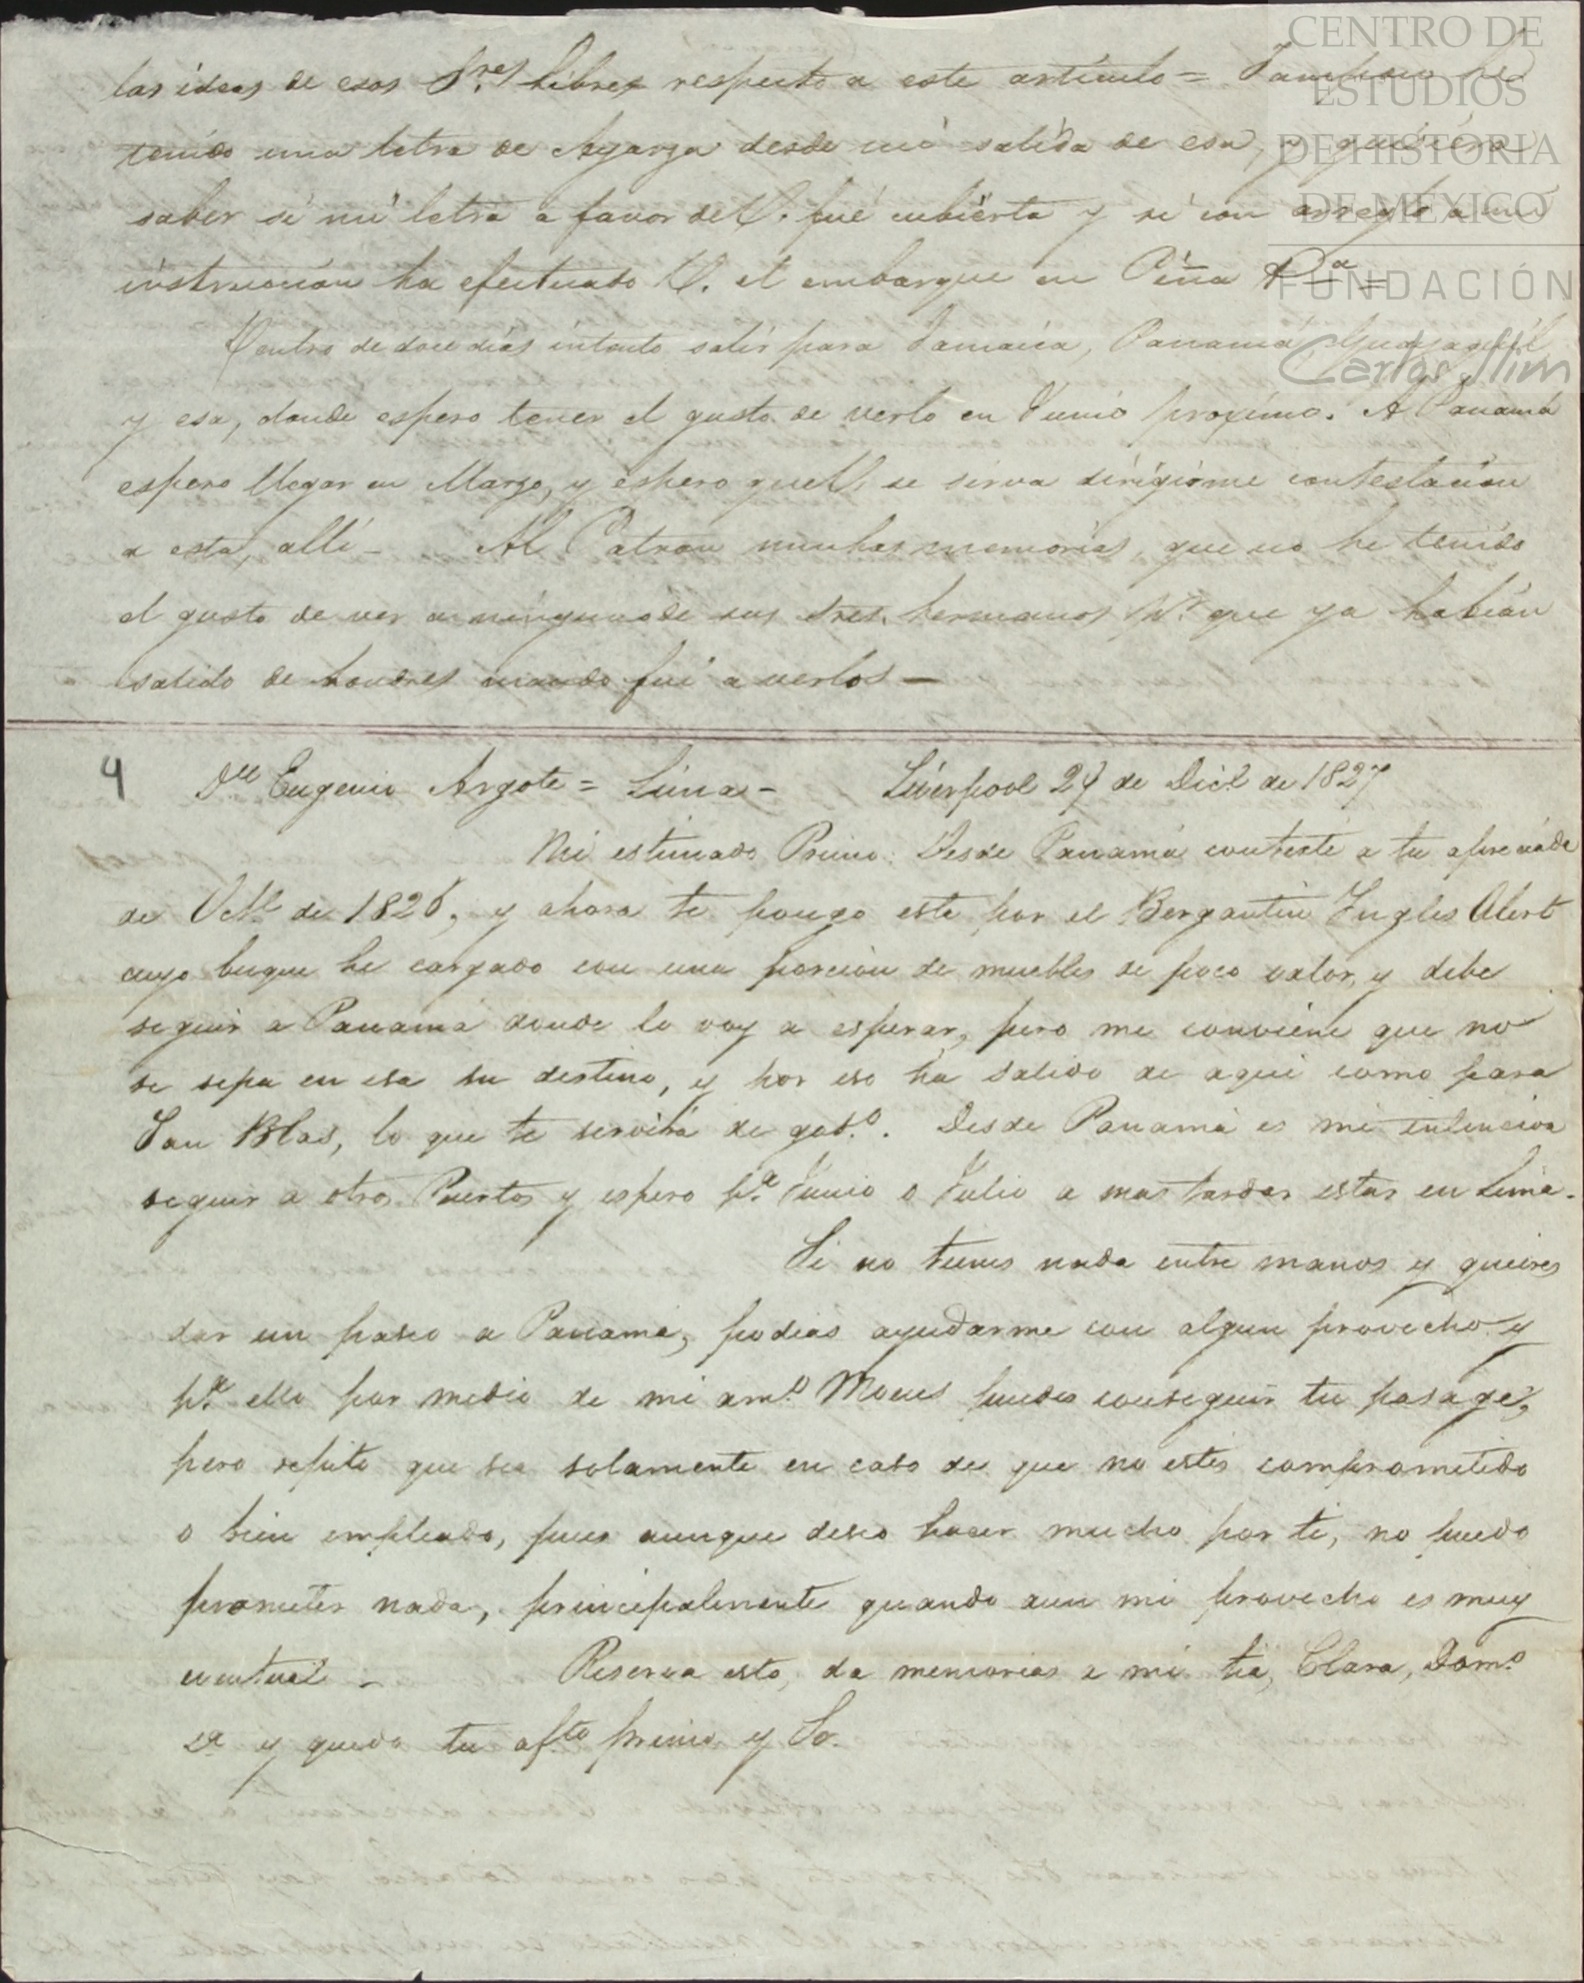 las ideas de esos Sres libres respecto a este artículo = Tampoco he
tenido una letra de Ayarza desde mi salida de esa, y quisiera
saber si mi letra a favor de V. fué cubierta y si con arreglo a mi
instruccion ha efectuado V. el embarque en Piña &a =
Dentro de doce dias intento salir para Jamaica, Panamá, Guayaquil
y esa, donde espero tener el gusto de verlo en Junio proximo. A Panamá
espero llegar en Marzo, y espero que V. se sirva dirigirme contestacion
a esta, allí - Al Patron muchas memorias, que no he tenido
el gusto de ver a ninguno de sus tres hermanos pr. que ya habian
salido de Londres cuando fui a verlos —
4 Dn Eugenio Argote = Lima - Liverpool 24 de Dice. de 1827
Mi estimado Primo: Desde Panamá contesté a tu apreciada
de Octe de 1826, y ahora te pongo este por el Bergantin Ingles Alert
cuyo buque he cargado con una porcion de muebles de poco valor, y debe
seguir a Panamá donde lo voy a esperar, pero me conviene que no
se sepa en esa su destino, y por eso ha salido de aqui como para
San Blas, lo que te servirá de gobo. Desde Panamá es mi intencion
seguir a otros Puertos y espero pa Junio o Julio a mas tardar estar en Lima.
Si no tienes nada entre manos y quieres
dar un paseo a Panamá, podias ayudarme con algun provecho y
pa ello por medio de mi amo puedes conseguir tu pasage,
pero repito que sea solamente en caso de que no estés comprometido
o bien empleado, pues aunque deseo hacer mucho por ti, no puedo
prometer nada, principalmente quando aun mi provecho es muy
eventual - Reserva esto, da memorias a mi tia, Clara, Domo
&a y queda tu afto primo y So.
CENTRO DE
ESTUDIOS
DE HISTORIA
DE MÉXICO
FUNDACIÓN
Carlos Slim